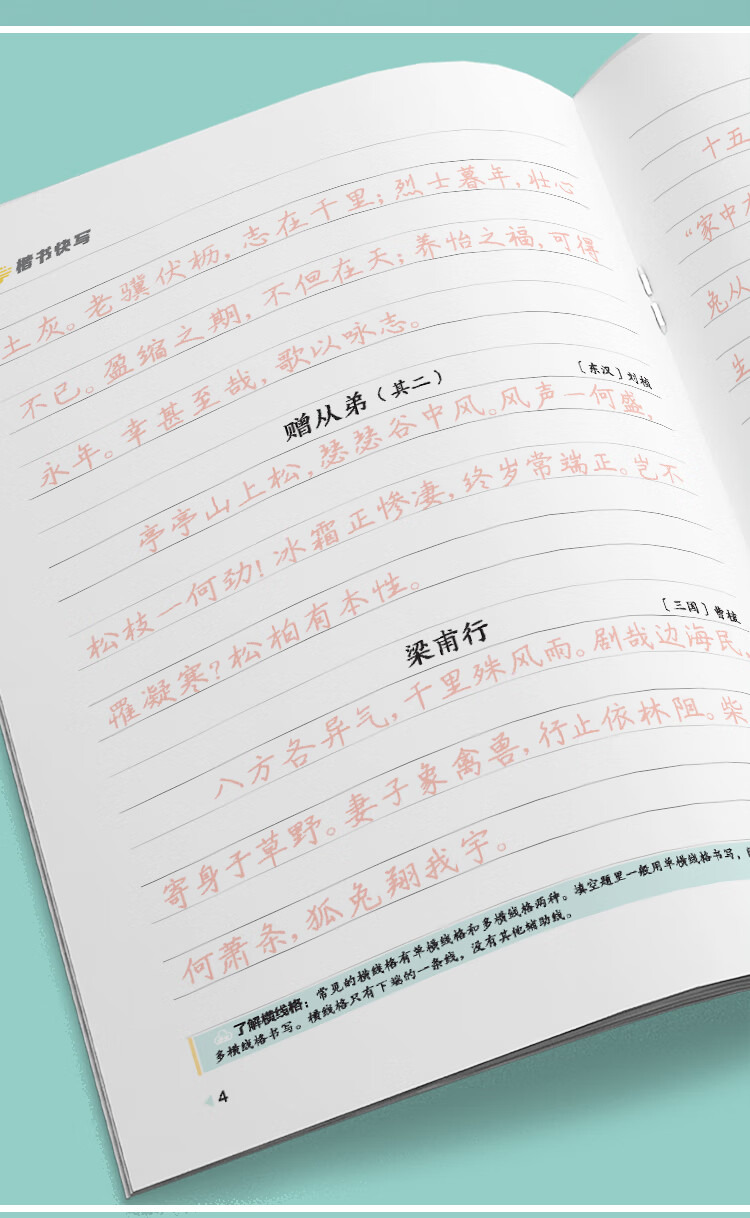 楷书快写
土灰。老骥伏枥，志在千里；烈士暮年，壮心
不已。盈缩之期，不但在天；养怡之福，可得
永年。幸甚至哉，歌以咏志。
赠从弟（其二）
［东汉］刘桢
亭亭山上松，瑟瑟谷中风。风声一何盛，
松枝一何劲！冰霜正惨凄，终岁常端正。岂不
罹凝寒？松柏有本性。
梁甫行
［三国］曹植
八方各异气，千里殊风雨。剧哉边海民，
寄身于草野。妻子象禽兽，行止依林阻。柴
何萧条，狐兔翔我宇。
了解横线格：常见的横线格有单横线格和多横线格两种。填空题里一般用单横线格书写，
多横线格书写。横线格只有下端的一条线，没有其他辅助线。
4
十五
“家中
兔从